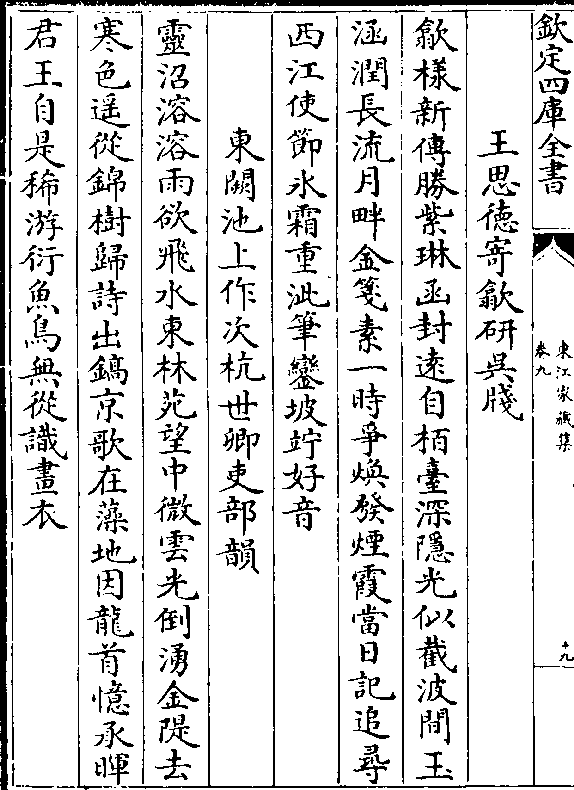 欽定四庫全書
東江家藏集
卷九
十九
王思德寄歙硏呉牋
歙様新傳勝紫琳函封逺自栢臺深隠光似截波間玉
涵潤長流月畔金箋素一時爭煥發煙霞當日記追尋
西江使節氷霜重泚筆鑾坡竚好音
東闕池上作次杭世卿吏部韻
靈沼溶溶雨欲飛水東林苑望中微雲光倒湧金隄去
寒色遥從錦樹歸詩出鎬京歌在藻地因龍首憶承暉
君王自是稀游衍魚鳥無從識畫衣